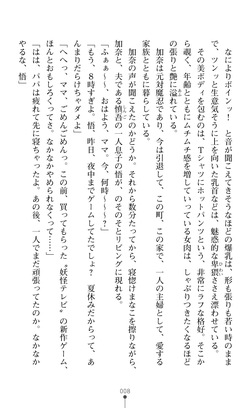 なによりボインッ！　と音が聞こえてきそうなほどの爆乳は、形も張りも若い時のまま
で、ツンッと生意気そうに上を向いた乳首などは、魅惑的な卑猥ささえ漂わせている。
その美ボディを包むのは、Ｔシャツにホットパンツという、非常にラフな格好。そこか
ら覗く、年齢とともにムチムチ感を増していっている女肉は、しゃぶりつきたくなるほど
の張りと艶に溢れている。
加奈は元対魔忍であり、今は引退して、この町、この家で、一人の主婦として、愛する
家族とともに暮らしている。
加奈の声が聞こえたのかどうか。それから数分たってから、寝惚けまなこを擦りながら、
加奈と、夫である慎吾の一人息子の悟が、のそのそとリビングに現れる。
「ふぁぁ〜、おはよう、ママ。今、何時〜？」
「もう、８時すぎよ、悟。昨日、夜中までゲームしてたでしょ？　夏休みだからって、あ
んまりだらけちゃダメよ」
「へへっ、ママ、ごめんごめんっ。この前、買ってもらった『妖怪テレビ』の新作ゲーム、
ほんとおもしろくってさ。なかなかやめられなくって……」
「はは、パパは疲れて先に寝ちゃったよ。あの後、一人でまだ頑張ってたのか。なかなか
やるな、悟」
008